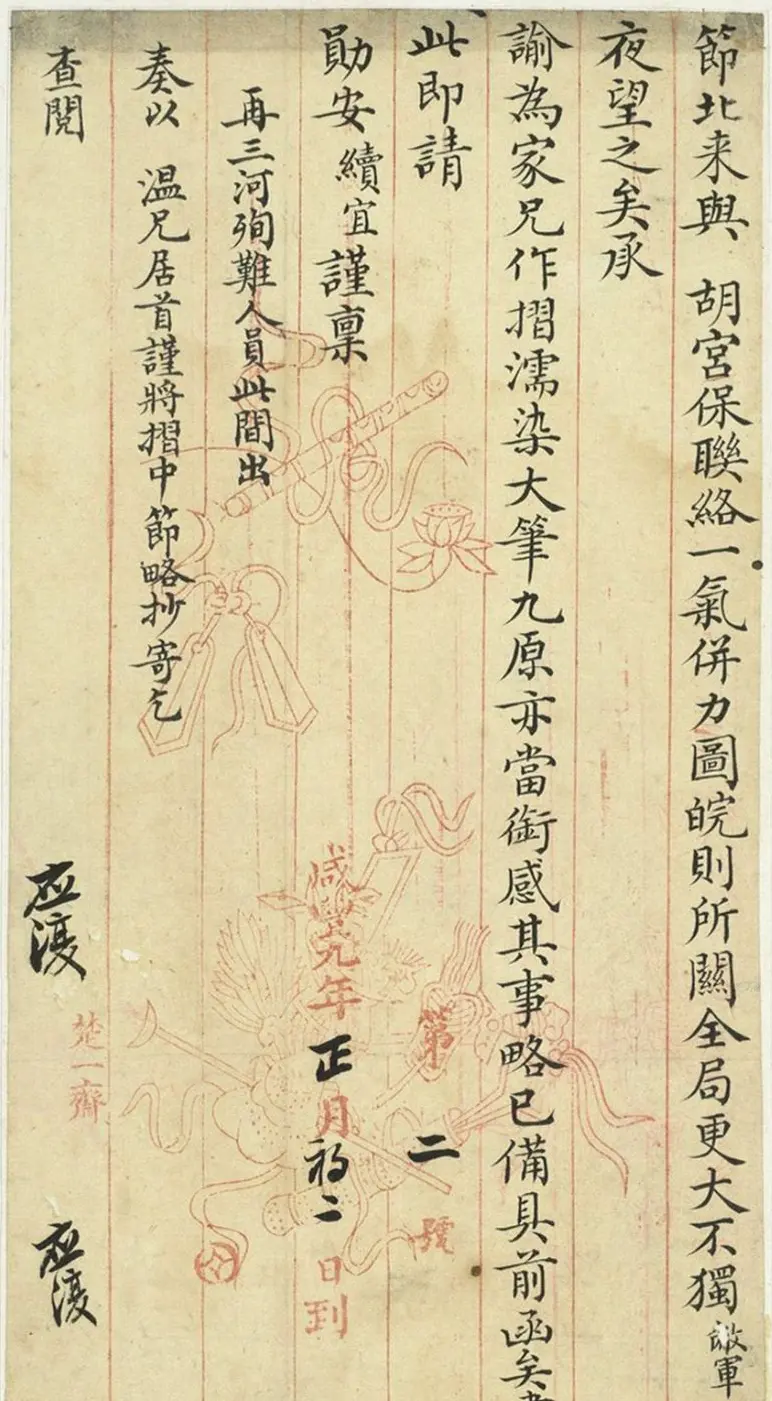 節北来與 胡宮保聯絡一氣併力圖皖則所關全局更大不獨敝軍
夜望之矣承
諭為家兄作摺濡染大筆九原亦當銜感其事略已備具前函矣肅
此即請
勛安 續宜謹稟
再三河殉難人員此間出
奏以 温兄居首謹將摺中節略抄寄乞
查閱
第二號
咸豐九年正月初二日到
应復
楚一齋
应復